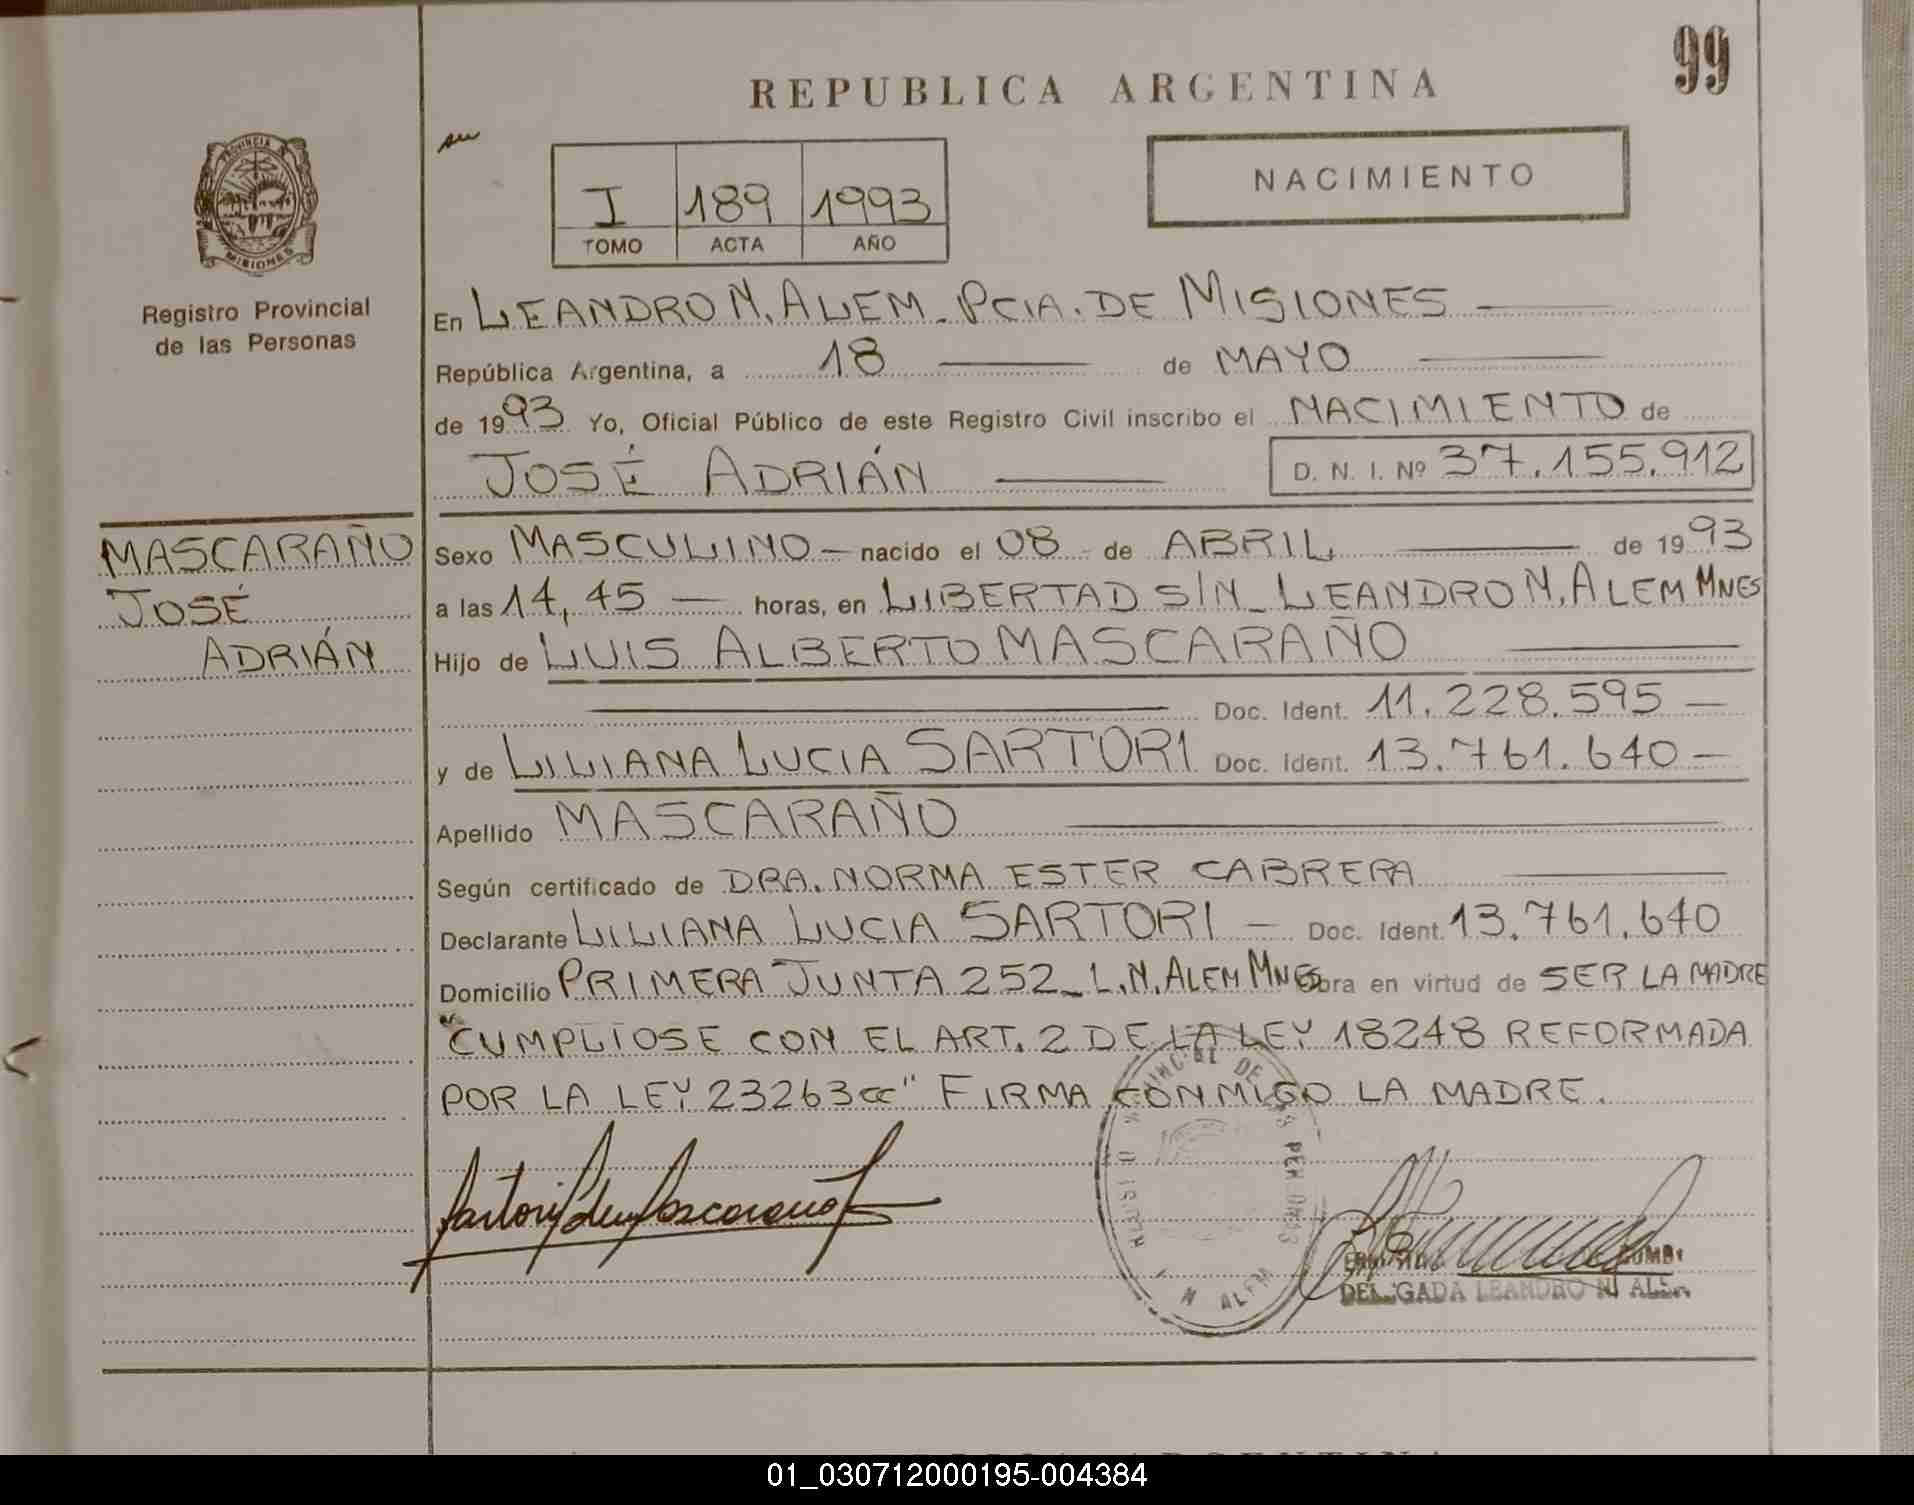 99
REPUBLICA ARGENTINA
PROVINCIA
MISIONES
Registro Provincial
de las Personas
I 189 1993
TOMO ACTA AÑO
NACIMIENTO
En LEANDRO N. ALEM - PCIA. DE MISIONES
República Argentina, a 18 de MAYO
de 1993 Yo, Oficial Público de este Registro Civil inscribo el NACIMIENTO de
JOSÉ ADRIÁN D. N. I. Nº 37.155.912
MASCARAÑO
JOSÉ
ADRIÁN
Sexo MASCULINO - nacido el 08 de ABRIL de 1993
a las 14,45 horas, en LIBERTAD S/N - LEANDRO N. ALEM MNES
Hijo de LUIS ALBERTO MASCARAÑO
Doc. Ident. 11.228.595 -
y de LILIANA LUCIA SARTORI Doc. Ident. 13.761.640 -
Apellido MASCARAÑO
Según certificado de DRA. NORMA ESTER CABRERA
Declarante LILIANA LUCIA SARTORI - Doc. Ident. 13.761.640
Domicilio PRIMERA JUNTA 252 - L.N. ALEM MNES Obra en virtud de SER LA MADRE
"CUMPLIOSE CON EL ART. 2 DE LA LEY 18248 REFORMADA
POR LA LEY 23263 cc" FIRMA CONMIGO LA MADRE.
Sartori de Mascaraño
N ALEM
DELEGADA LEANDRO N ALEM
01_030712000195-004384